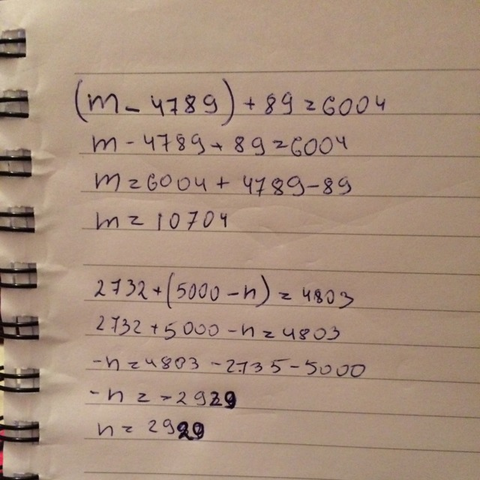 (m - 4789) + 89 = 6004
m - 4789 + 89 = 6004
m = 6004 + 4789 - 89
m = 10704
2732 + (5000 - n) = 4803
2732 + 5000 - n = 4803
-n = 4803 - 2735 - 5000
-n = -2929
n = 2929